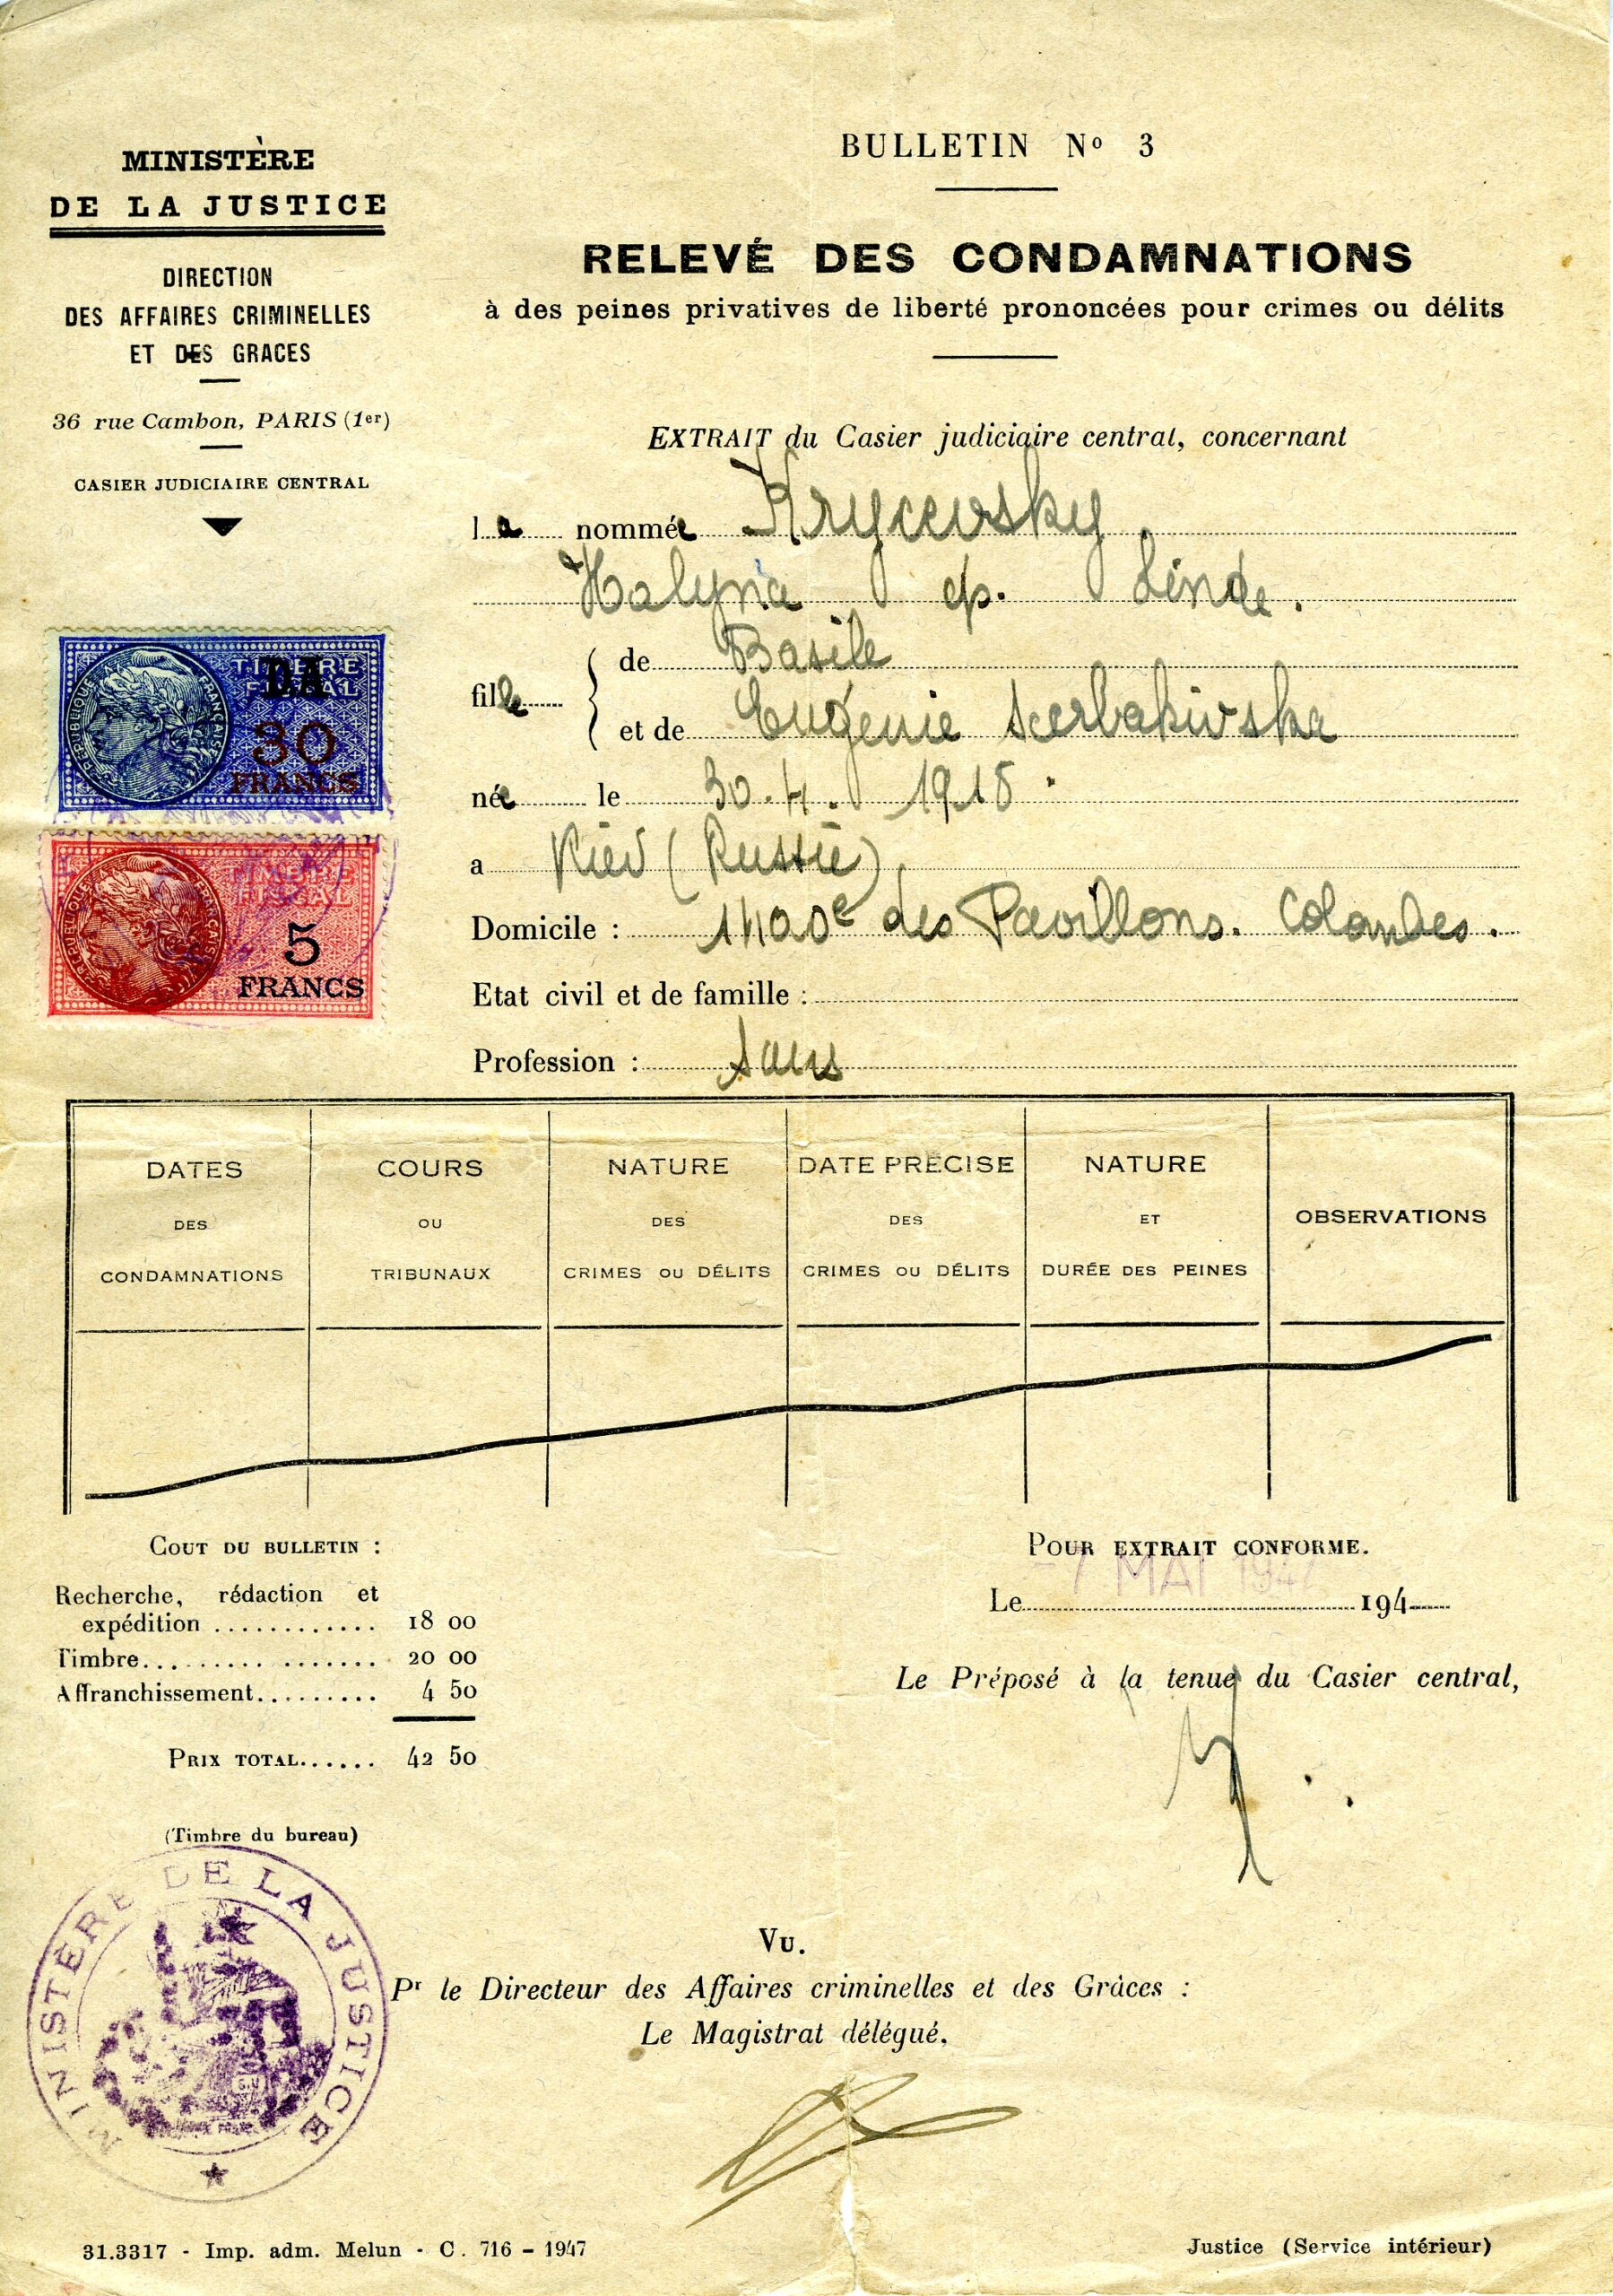 MINISTÈRE
DE LA JUSTICE
DIRECTION
DES AFFAIRES CRIMINELLES
ET DES GRACES
36 rue Cambon, PARIS (1er)
CASIER JUDICIAIRE CENTRAL
BULLETIN No 3
RELEVÉ DES CONDAMNATIONS
à des peines privatives de liberté prononcées pour crimes ou délits
EXTRAIT du Casier judiciaire central, concernant
la nommée Krycevsky
Halyna ep. Linde.
fille de Basile
et de Eugenie Scerbakivska
née le 30.4. 1918
a Kiev (Russie)
Domicile : des Pavillons. Colombes.
Etat civil et de famille :
Profession : sans
TIMBRE
FISCAL
DA
30
FRANCS
REPUBLIQUE FRANÇAISE
TIMBRE
FISCAL
5
FRANCS
REPUBLIQUE FRANÇAISE
DATES DES CONDAMNATIONS
COURS OU TRIBUNAUX
NATURE DES CRIMES OU DÉLITS
DATE PRÉCISE DES CRIMES OU DÉLITS
NATURE ET DURÉE DES PEINES
OBSERVATIONS
COUT DU BULLETIN :
Recherche, rédaction et
expédition ............ 18 00
Timbre................ 20 00
Affranchissement......... 4 50
PRIX TOTAL...... 42 50
(Timbre du bureau)
MINISTERE DE LA JUSTICE
POUR EXTRAIT CONFORME.
-7 MAI 1947
Le 194
Le Préposé à la tenue du Casier central,
VU.
Pr le Directeur des Affaires criminelles et des Grâces :
Le Magistrat délégué.
31.3317 - Imp. adm. Melun - C. 716 - 1947
Justice (Service intérieur)